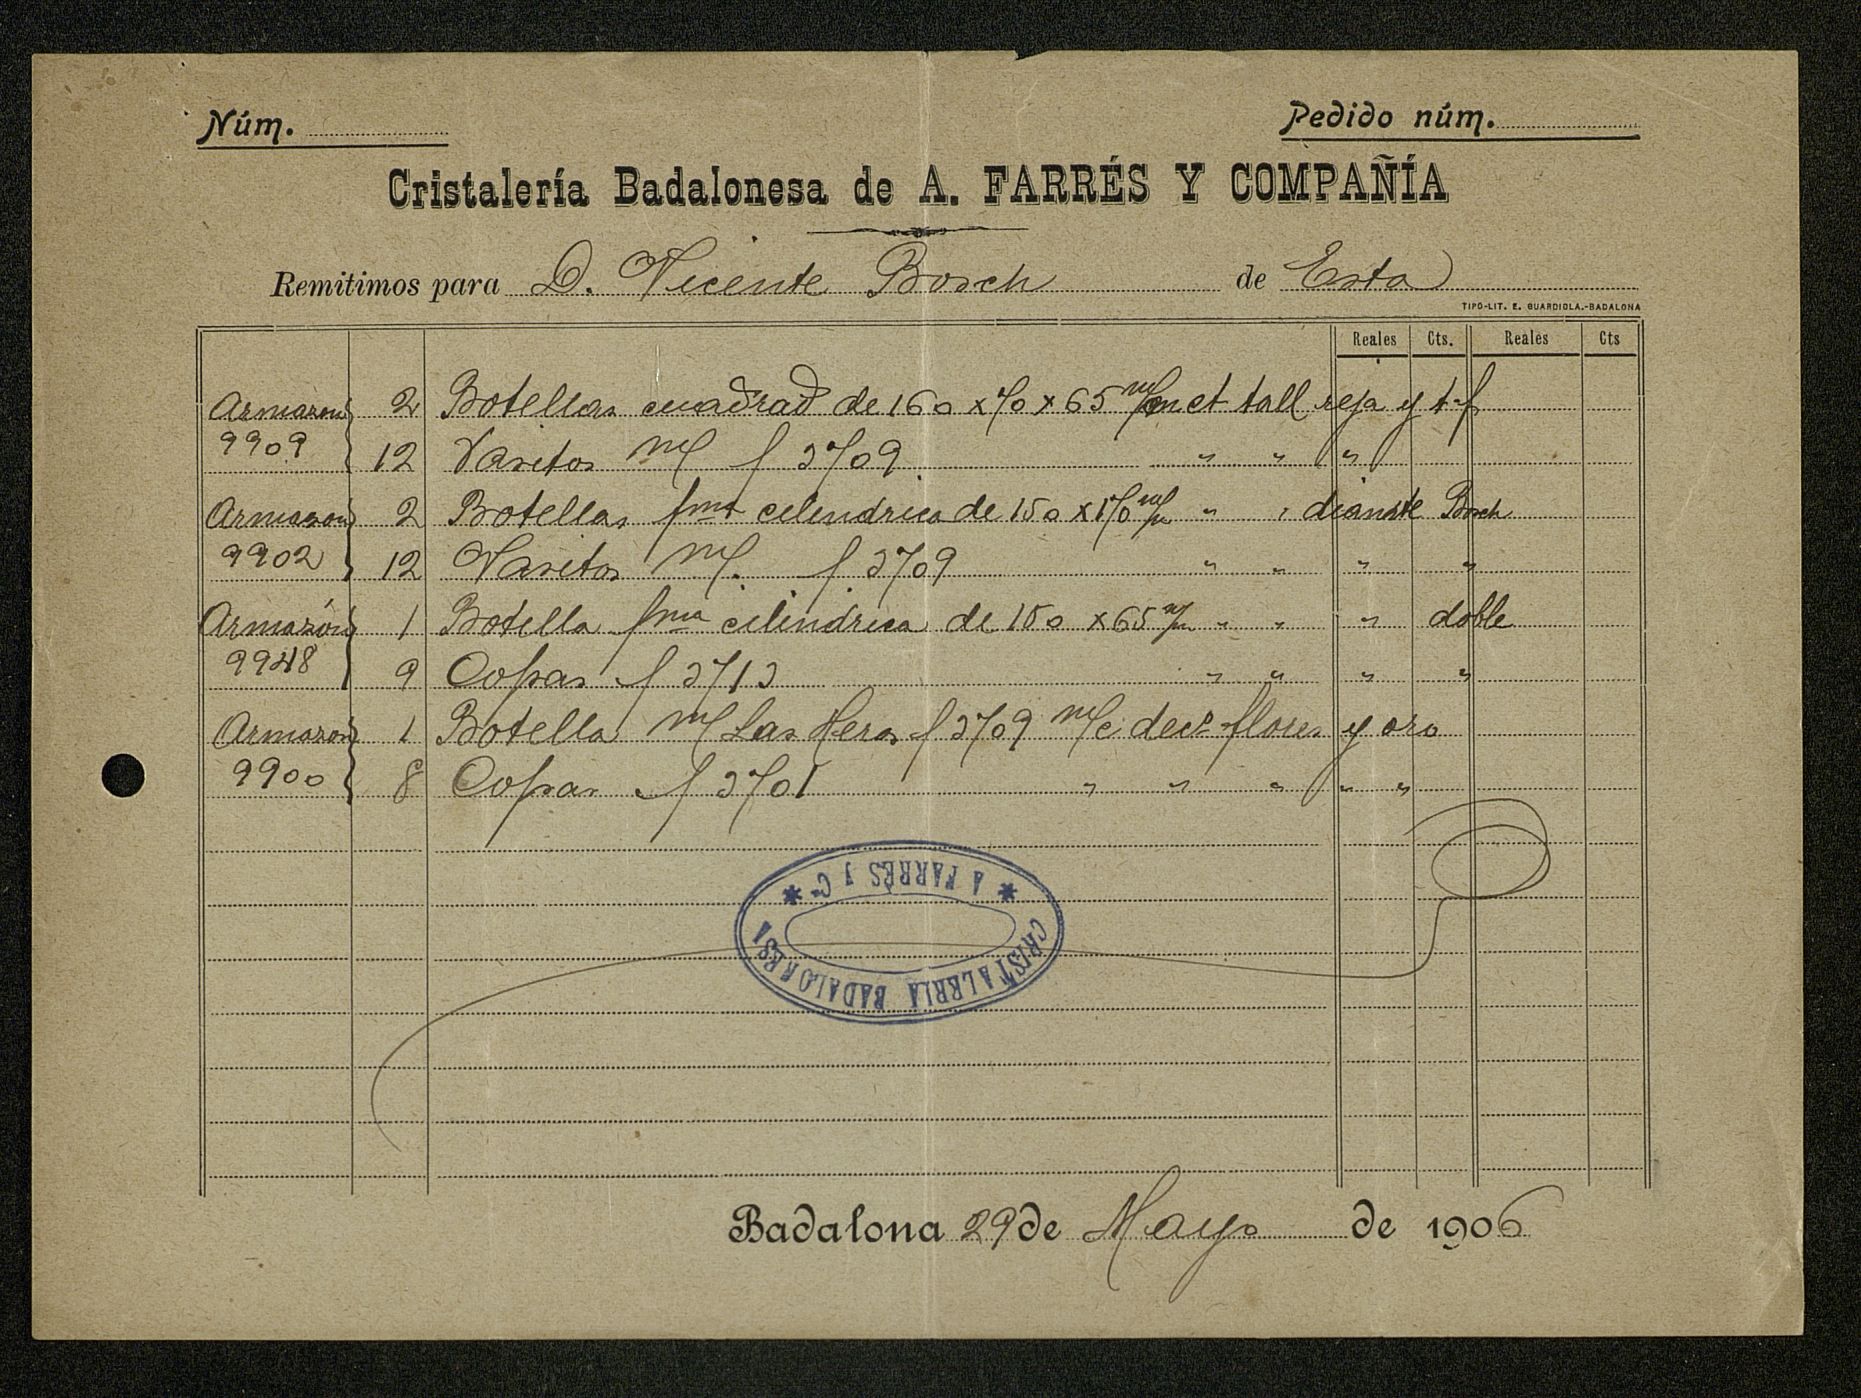 Núm.
Pedido núm.
Cristalería Badalonesa de A. FARRÉS Y COMPAÑÍA
Remitimos para D. Vicente Bosch de Esta
TIPO-LIT. E. GUARDIOLA.-BADALONA
Reales Cts. Reales Cts
Armazon 2 Botellas cuadrad de 160 x 70 x 65 m/m ct tall reja y t-f
9909 12 Vasitos M f 3709 " " "
Armazon 2 Botellas fma cilindrica de 150 x 170 m/m " " diamte Bosch
9902 12 Vasitos M. f 3709 " " " "
Armazón 1 Botella fma cilindrica de 150 x 65 m/m " " " doble
9948 9 Copas f 3713 " " " "
Armazon 1 Botella M Las Heras f 3709 decº flores y oro
9900 8 Copas f 3701 " " " " "
A FARRÉS Y Cª
CRISTALERIA BADALONESA
Badalona 29 de Mayo de 1906